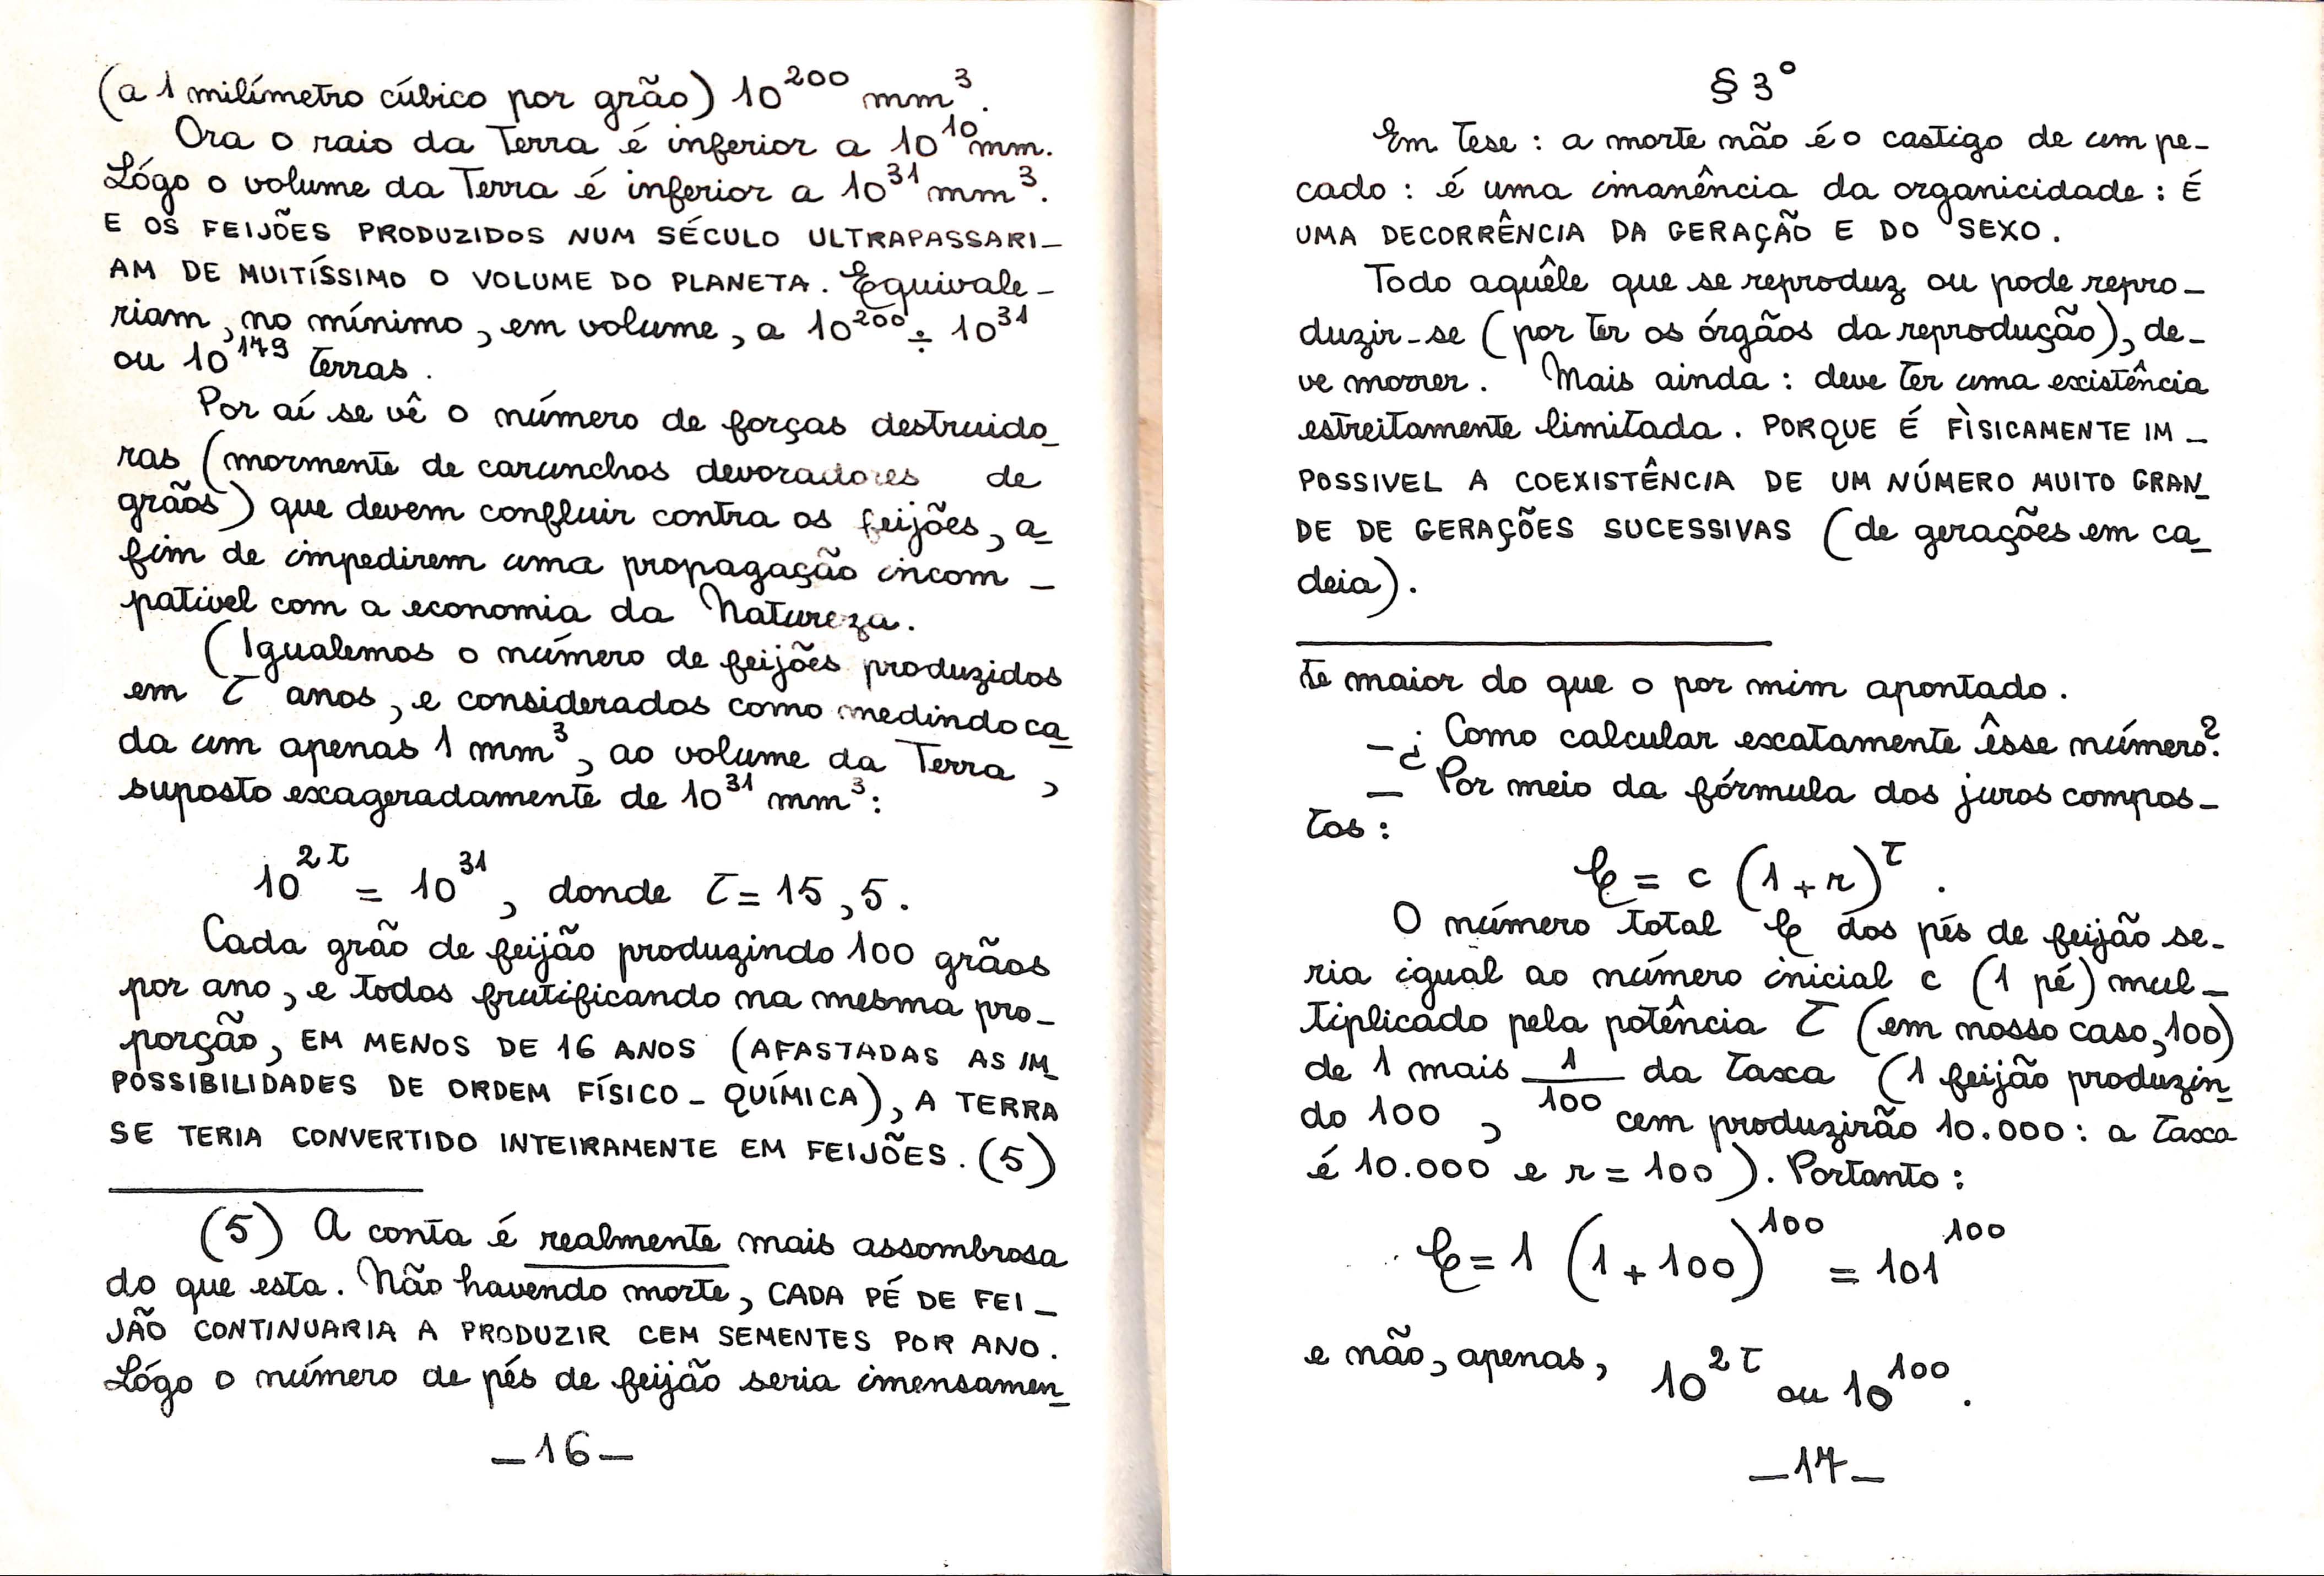 (a 1 milímetro cúbico por grão) 10²⁰⁰ mm³.
Ora o raio da Terra é inferior a 10¹⁰ mm.
Lógo o volume da Terra é inferior a 10³¹ mm³.
E OS FEIJÕES PRODUZIDOS NUM SÉCULO ULTRAPASSARI-
AM DE MUITÍSSIMO O VOLUME DO PLANETA. Equivale-
riam, no mínimo, em volume, a 10²⁰⁰ ÷ 10³¹
ou 10¹⁷⁹ Terras.
Por aí se vê o número de forças destruido-
ras (mormente de carunchos devoradores de
grãos) que devem confluir contra os feijões, a-
fim de impedirem uma propagação incom-
pativel com a economia da Natureza.
(Igualemos o número de feijões produzidos
em t anos, e considerados como medindo ca-
da um apenas 1 mm³, ao volume da Terra,
suposto exageradamente de 10³¹ mm³:
10²ᵗ = 10³¹, donde t = 15,5.
Cada grão de feijão produzindo 100 grãos
por ano, e todos frutificando na mesma pro-
porção, EM MENOS DE 16 ANOS (AFASTADAS AS IM-
POSSIBILIDADES DE ORDEM FÍSICO-QUÍMICA), A TERRA
SE TERIA CONVERTIDO INTEIRAMENTE EM FEIJÕES. (5)
(5) A conta é realmente mais assombrosa
do que esta. Não havendo morte, CADA PÉ DE FEI-
JÃO CONTINUARIA A PRODUZIR CEM SEMENTES POR ANO.
Lógo o número de pés de feijão seria imensamen-
-16-
§ 3º
Em tese: a morte não é o castigo de um pe-
cado: é uma imanência da organicidade: É
UMA DECORRÊNCIA DA GERAÇÃO E DO SEXO.
Todo aquêle que se reproduz ou pode repro-
duzir-se (por ter os órgãos da reprodução), de-
ve morrer. Mais ainda: deve ter uma existência
estreitamente limitada. PORQUE É FÌSICAMENTE IM-
POSSIVEL A COEXISTÊNCIA DE UM NÚMERO MUITO GRAN-
DE DE GERAÇÕES SUCESSIVAS (de gerações em ca-
deia).
te maior do que o por mim apontado.
-¿ Como calcular exatamente êsse número?
- Por meio da fórmula dos juros compos-
tos:
C = c (1+r)ᵗ.
O número total C dos pés de feijão se-
ria igual ao número inicial c (1 pé) mul-
tiplicado pela potência t (em nosso caso, 100)
de 1 mais 1/100 da taxa (1 feijão produzin-
do 100, cem produzirão 10.000: a taxa
é 10.000 e r = 100). Portanto:
C = 1 (1+100)¹⁰⁰ = 101¹⁰⁰
e não, apenas, 10²ᵗ ou 10¹⁰⁰.
-17-